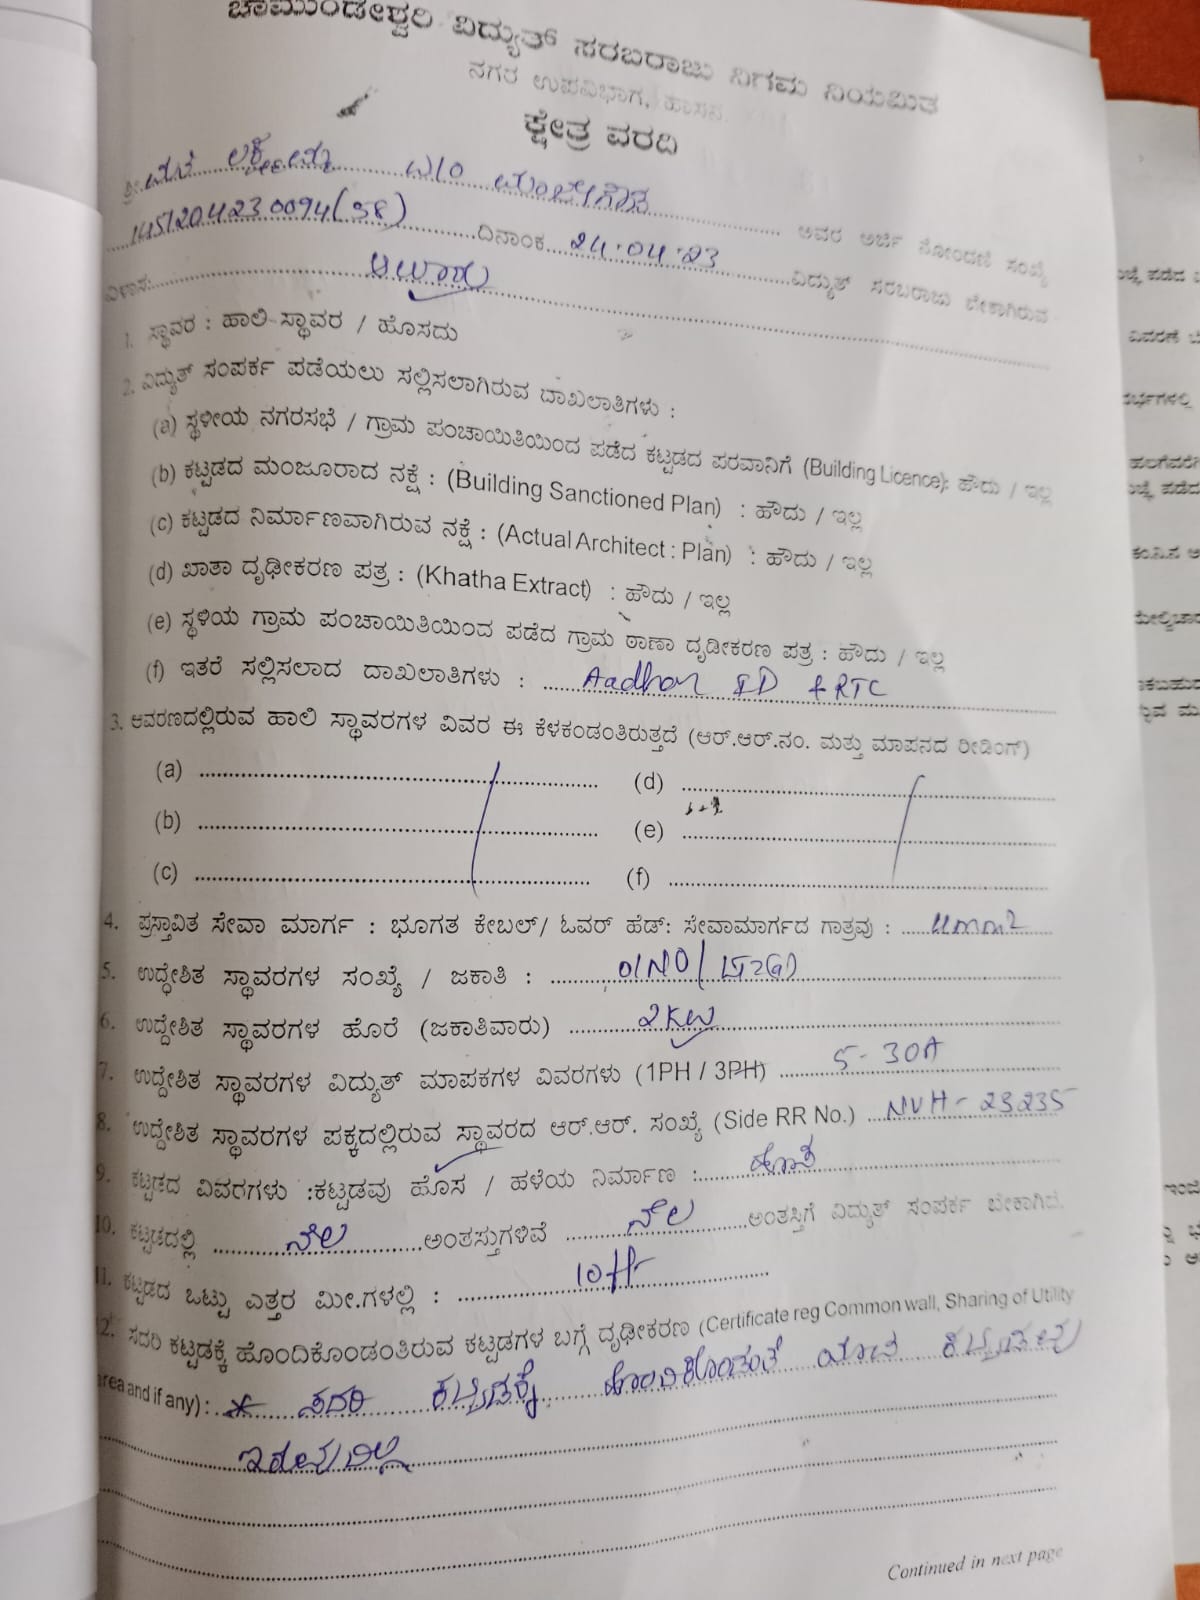 ಚಾಮುಂಡೇಶ್ವರಿ ವಿದ್ಯುತ್ ಸರಬರಾಜು ನಿಗಮ ನಿಯಮಿತ
ನಗರ ಉಪವಿಭಾಗ, ಹಾಸನ.
ಕ್ಷೇತ್ರ ವರದಿ
ಶ್ರೀಮತಿ ಲಕ್ಷ್ಮಮ್ಮ ಅವರ ಅರ್ಜಿ ನೋಂದಣಿ ಸಂಖ್ಯೆ
1451204230094(58) ದಿನಾಂಕ 24.04.23 ವಿದ್ಯುತ್ ಸರಬರಾಜು ಬೇಕಾಗಿರುವ
ವಿಳಾಸ:
1. ಸ್ಥಾವರ : ಹಾಲಿ ಸ್ಥಾವರ / ಹೊಸದು
2. ವಿದ್ಯುತ್ ಸಂಪರ್ಕ ಪಡೆಯಲು ಸಲ್ಲಿಸಲಾಗಿರುವ ದಾಖಲಾತಿಗಳು :
(a) ಸ್ಥಳೀಯ ನಗರಸಭೆ / ಗ್ರಾಮ ಪಂಚಾಯಿತಿಯಿಂದ ಪಡೆದ ಕಟ್ಟಡದ ಪರವಾನಿಗೆ (Building Licence): ಹೌದು / ಇಲ್ಲ
(b) ಕಟ್ಟಡದ ಮಂಜೂರಾದ ನಕ್ಷೆ : (Building Sanctioned Plan) : ಹೌದು / ಇಲ್ಲ
(c) ಕಟ್ಟಡದ ನಿರ್ಮಾಣವಾಗಿರುವ ನಕ್ಷೆ : (Actual Architect : Plan) : ಹೌದು / ಇಲ್ಲ
(d) ಖಾತಾ ದೃಢೀಕರಣ ಪತ್ರ : (Khatha Extract) : ಹೌದು / ಇಲ್ಲ
(e) ಸ್ಥಳಿಯ ಗ್ರಾಮ ಪಂಚಾಯಿತಿಯಿಂದ ಪಡೆದ ಗ್ರಾಮ ಠಾಣಾ ದೃಡೀಕರಣ ಪತ್ರ : ಹೌದು / ಇಲ್ಲ
(f) ಇತರೆ ಸಲ್ಲಿಸಲಾದ ದಾಖಲಾತಿಗಳು : Aadhar ID & RTC
3. ಆವರಣದಲ್ಲಿರುವ ಹಾಲಿ ಸ್ಥಾವರಗಳ ವಿವರ ಈ ಕೆಳಕಂಡಂತಿರುತ್ತದೆ (ಆರ್.ಆರ್.ನಂ. ಮತ್ತು ಮಾಪನದ ರೀಡಿಂಗ್)
(a) (d)
(b) (e)
(c) (f)
4. ಪ್ರಸ್ತಾವಿತ ಸೇವಾ ಮಾರ್ಗ : ಭೂಗತ ಕೇಬಲ್/ ಓವರ್ ಹೆಡ್: ಸೇವಾಮಾರ್ಗದ ಗಾತ್ರವು : 4mm2
5. ಉದ್ಧೇಶಿತ ಸ್ಥಾವರಗಳ ಸಂಖ್ಯೆ / ಜಕಾತಿ : 01NO/
6. ಉದ್ದೇಶಿತ ಸ್ಥಾವರಗಳ ಹೊರೆ (ಜಕಾತಿವಾರು) 2KW
7. ಉದ್ದೇಶಿತ ಸ್ಥಾವರಗಳ ವಿದ್ಯುತ್ ಮಾಪಕಗಳ ವಿವರಗಳು (1PH / 3PH) 5-30A
8. ಉದ್ದೇಶಿತ ಸ್ಥಾವರಗಳ ಪಕ್ಕದಲ್ಲಿರುವ ಸ್ಥಾವರದ ಆರ್.ಆರ್. ಸಂಖ್ಯೆ (Side RR No.) NVH-23235
9. ಕಟ್ಟಡದ ವಿವರಗಳು :ಕಟ್ಟಡವು ಹೊಸ / ಹಳೆಯ ನಿರ್ಮಾಣ : ಹೊಸ
10. ಕಟ್ಟಡದಲ್ಲಿ ನೆಲ ಅಂತಸ್ತುಗಳಿವೆ ನೆಲ ಅಂತಸ್ತಿಗೆ ವಿದ್ಯುತ್ ಸಂಪರ್ಕ ಬೇಕಾಗಿದೆ.
11. ಕಟ್ಟಡದ ಒಟ್ಟು ಎತ್ತರ ಮೀ.ಗಳಲ್ಲಿ : 10ft
12. ಸದರಿ ಕಟ್ಟಡಕ್ಕೆ ಹೊಂದಿಕೊಂಡಂತಿರುವ ಕಟ್ಟಡಗಳ ಬಗ್ಗೆ ದೃಢೀಕರಣ (Certificate reg Common wall, Sharing of Utility
area and if any) : * ಸದರಿ ಕಟ್ಟಡಕ್ಕೆ ಹೊಂದಿಕೊಂಡಂತೆ ಯಾವ ಕಟ್ಟಡವು
ಇರುವುದಿಲ್ಲ
Continued in next page